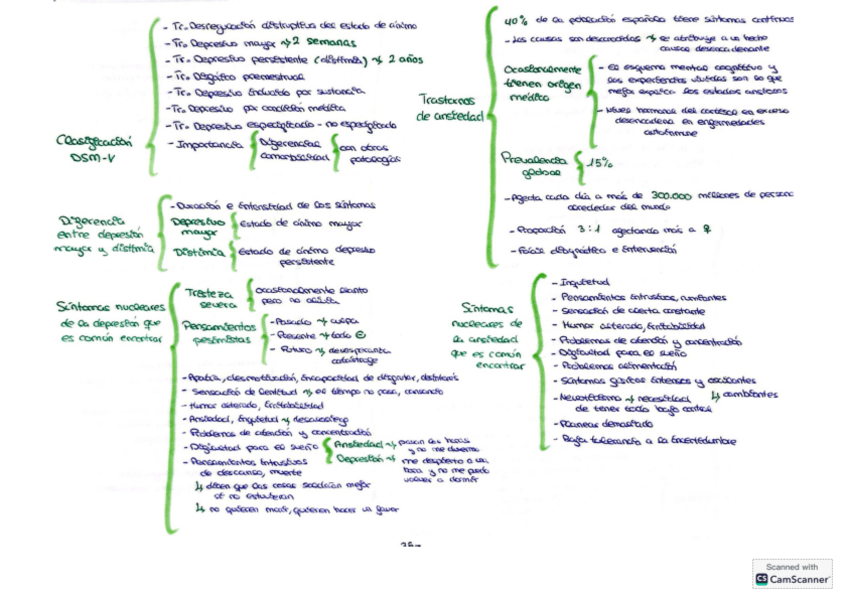 Clasificación DSM-V
- Tr. Desregulación disruptiva del estado de ánimo
- Tr. Depresivo mayor → 2 semanas
- Tr. Depresivo persistente (distimia) → 2 años
- Tr. Disfórico premenstrual
- Tr. Depresivo inducido por sustancia
- Tr. Depresivo por condición médica
- Tr. Depresivo especificado - no especificado
- Importancia
Diferencial
comorbilidad
con otras
patologías
Diferencia
entre depresión
mayor y distimia
- Duración e intensidad de los síntomas
Depresivo
mayor
Estado de ánimo mayor
Distimia
Estado de ánimo depresivo
persistente
Síntomas nucleares
de la depresión que
es común encontrar
Tristeza
severa
Ocasionalmente llanto
pero no alivia
Pensamientos
pesimistas
- Pasado → culpa
- Presente → todo ⊖
- Futuro → desesperanza
catástrofe
- Apatía, desmotivación, incapacidad de disfrutar,
- Sensación de lentitud → el tiempo no pasa, cansancio
- Humor alterado, irritabilidad
- Ansiedad, inquietud → desasosiego
- Problemas de atención y concentración
- Dificultad para el sueño
Ansiedad → pasan las horas
y no me duermo
Depresión → me despierto a una
hora y no me puedo
volver a dormir
- Pensamientos intrusivos
de descanso, muerte
↳ dicen que las cosas saldrían mejor
si no estuvieran
↳ no quieren morir, quieren hacer un favor
Trastornos
de ansiedad
40% de la población española tiene síntomas continuos
- Las causas son desconocidas → se atribuye a un hecho
causal desencadenante
Ocasionalmente
tienen origen
médico
- El esquema mental cognitivo y
las experiencias vividas son lo que
mejor explica los estados ansiosos
- Niveles hormona del cortisol en exceso
desencadena en enfermedades
autoinmune
Prevalencia
global
15%
- Afecta cada día a más de 300.000 millones de personas
alrededor del mundo
- Proporción 3:1 afectando más a ♀
- Fácil diagnóstico e intervención
Síntomas
nucleares de
la ansiedad
que es común
encontrar
- Inquietud
- Pensamientos intrusivos, rumiantes
- Sensación de alerta constante
- Humor alterado, irritabilidad
- Problemas de atención y concentración
- Dificultad para el sueño
- Problemas alimentación
- Síntomas físicos intensos y oscilantes
↳ cambiantes
- Neuroticismo → necesidad
de tener todo bajo control
- Planear demasiado
- Baja tolerancia a la incertidumbre
Scanned with
CS CamScanner